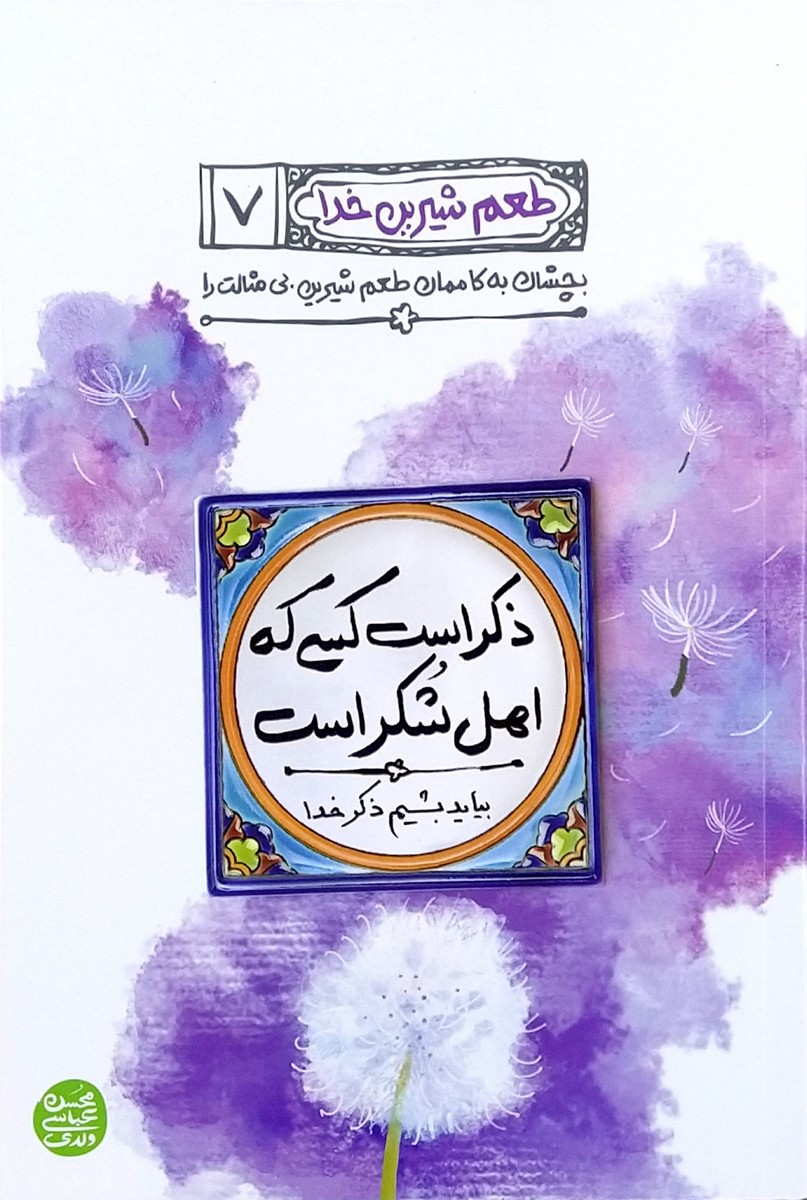 طعم شیرین خدا
۷
بچشان به کاممان طعم شیرین بی مثالت را
ذکر است کسی که
اهل شُکر است
بیاید بشیم ذکر خدا
محسن
عباسی
ولدی